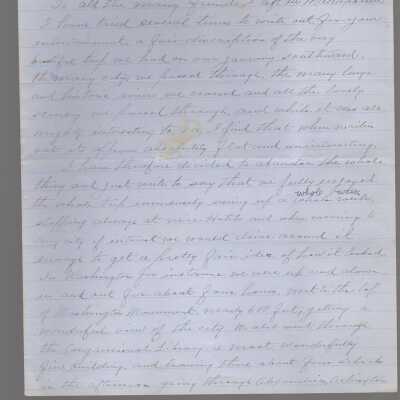 To all the many friends I left in
I have tried several times to write out for your
a fair description of the very
trip we had on our journey southward.
The many citys we passed through, the many large
and historic rivers we crossed and all the lovely
scenery we passed through, and while it was all
mighty interesting to us, I find that when written
out it is flat and uninteresting.
I have therefore decided to abandon the whole
thing and just write to say that we fully enjoyed
the whole trip immensely using up a whole week,
whole week,
stopping always at nice Hotels and when coming to
any city of interest we would drive around it
enough to get a pretty fair idea of how it looked.
In Washington for instance we were up and down
in and out for about four hours, went to the top
of Washington Monument, nearly 600 feet, getting a
wonderful view of the city. We also went through
the Congressional Library a most wonderfully
fine building, and leaving there about four o'clock
in the afternoon going through Alexandria, Arlington